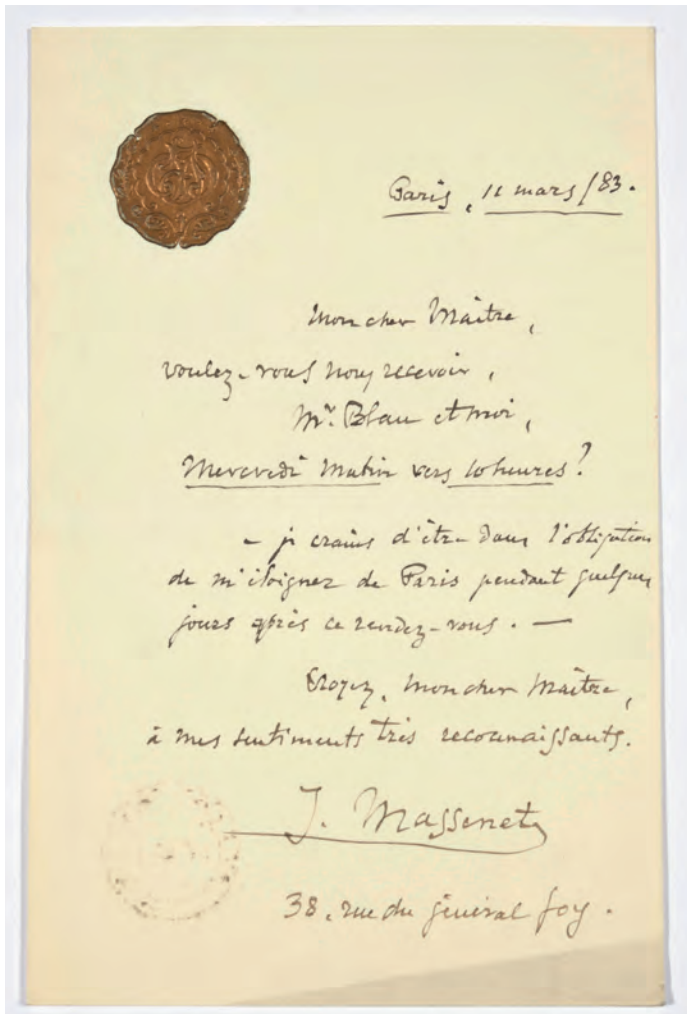 Paris, 11 mars / 83.
Mon cher Maître,
voulez-vous nous recevoir,
Mr. Blau et moi,
Mercredi matin vers 10 heures?
– je crains d'être dans l'obligation
de m'éloigner de Paris pendant quelques
jours après ce rendez-vous. —
Croyez, mon cher Maître,
à mes sentiments très reconnaissants.
J. Massenet
38, rue du général Foy.